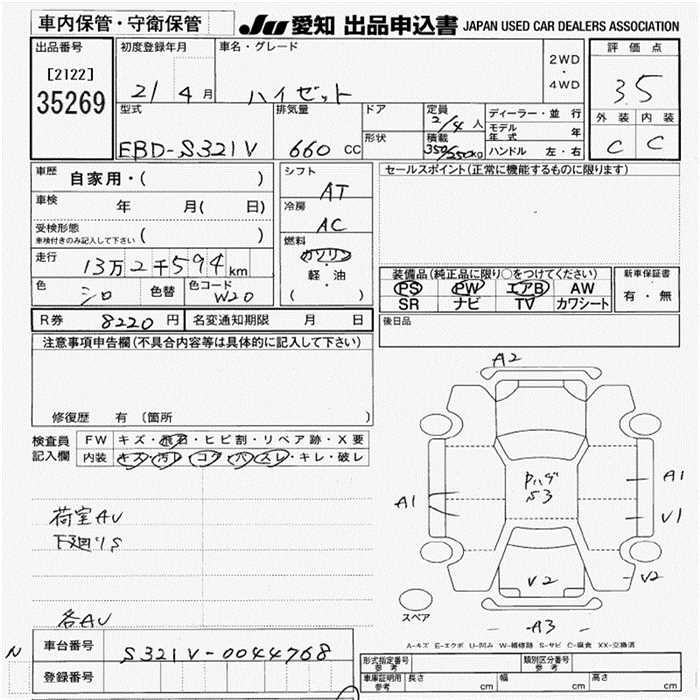 車内保管・守衛保管
JU 愛知 出品申込書 JAPAN USED CAR DEALERS ASSOCIATION
出品番号 初度登録年月 車名・グレード 2WD・4WD 評価点
[2122]
35269
21 4月 ハイゼット 3.5
型式 排気量 ドア 定員 2/4人 ディーラー・並行 外装 内装
EBD-S321V 660cc 形状 積載 350/250kg モデル年式 年 C C
ハンドル 左・右
車歴 自家用・( ) シフト AT セールスポイント(正常に機能するものに限ります)
車検 年 月( 日) 冷房 AC
受検形態 ( )
車検付きのみ記入して下さい
燃料 ガソリン・軽油 ( )
走行 13万2千594km
装備品(純正品に限り○をつけてください) 新車保証書
PS PW エアB AW 有・無
SR ナビ TV カワシート
色 シロ 色替 色コード W20
R券 8220円 名変通知期限 月 日 後日品
注意事項申告欄(不具合内容等は具体的に記入して下さい)
修復歴 有 〔箇所
検査員記入欄 FW キズ・飛石・ヒビ割・リペア跡・X要
内装 キズ・汚れ・コゲ・ハズレ・キレ・破レ
A2
A1
A1
V1
S3
V2
V2
A3
荷室AV
下廻りS
各AV
スペア
A-キズ E-エクボ U-凹み W-補修跡 S-サビ C-腐食 XX-交換済
N 車台番号 S321V-0044768
登録番号
形式指定番号 参考 類別区分番号 参考
車庫証明用 参考 長さ cm 幅 cm 高さ cm